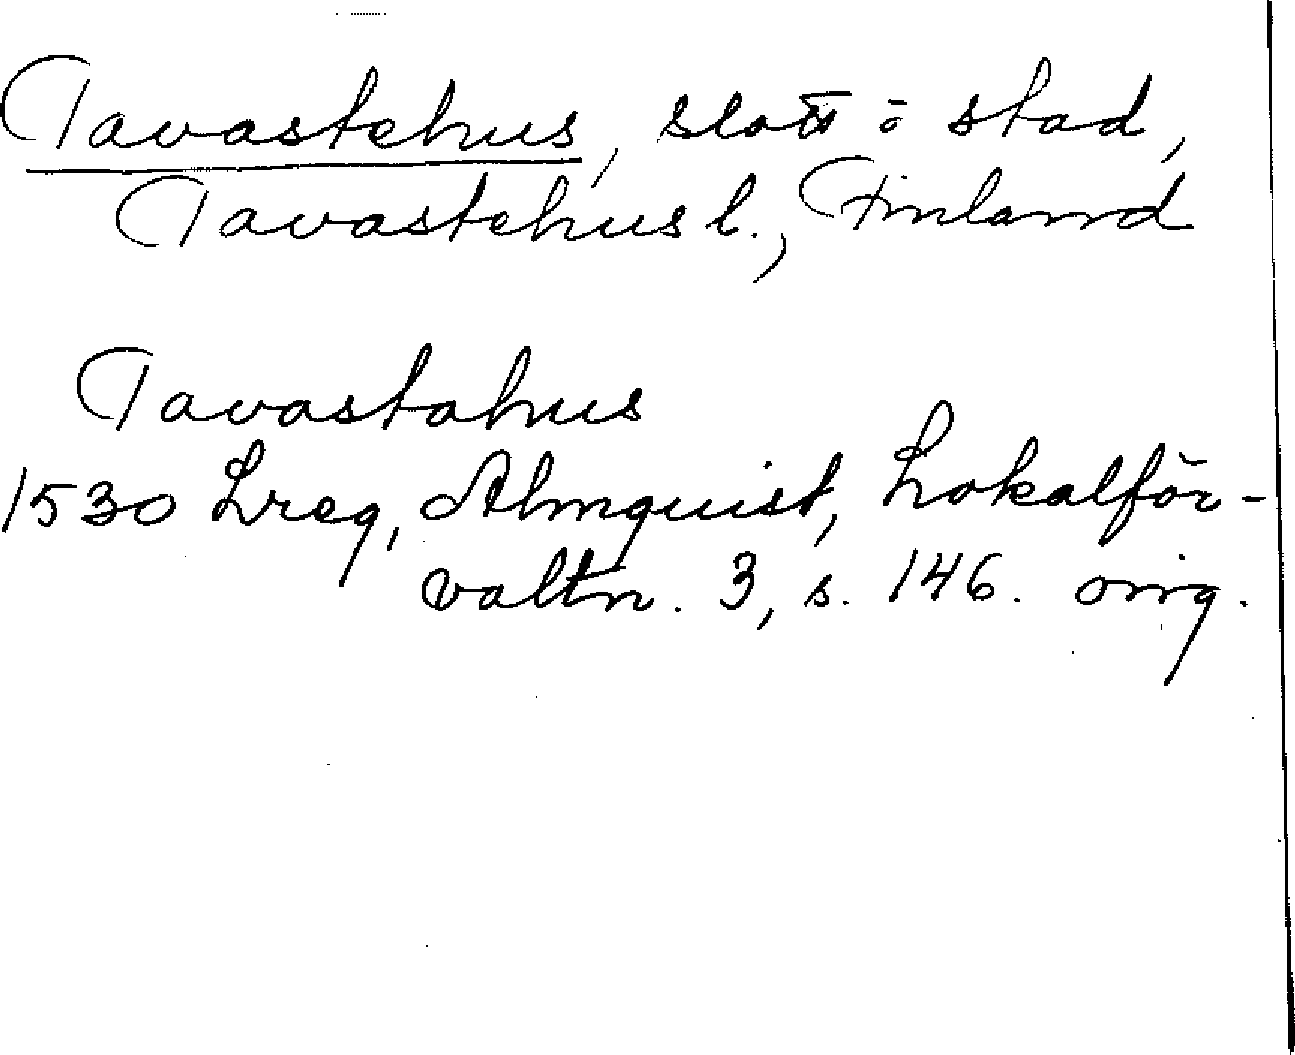 Tavastehus, slott o stad,
Tavastehus l., Finland
Tavastahus
1530 Lreg, Almquist, Lokalför-
valtn. 3, s. 146. orig.